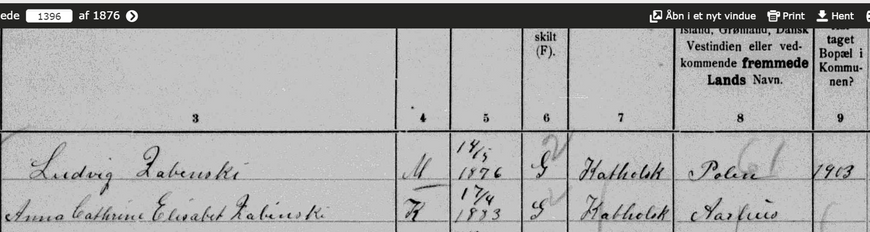 ede 1396 af 1876 Åbn i et nyt vindue Print Hent
Island, Grønland, Dansk
skilt Vestindien eller ved- taget
(F). kommende fremmede Bopæl i
Lands Navn. Kommu-
nen?
3 4 5 6 7 8 9
14/5
Ludvig Zabenski M 1876 G Katholsk Polen 1903
17/4
Anna Cathrine Elisabet Zabinski K 1883 G Katholsk Aarhus